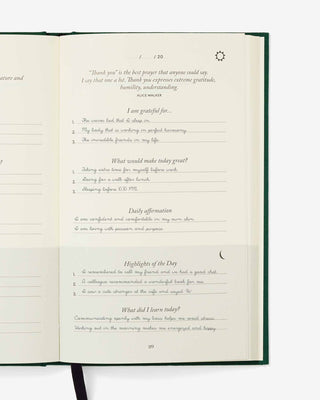 ature and
/ / 20
"Thank you" is the best prayer that anyone could say.
I say that one a lot. Thank you expresses extreme gratitude,
humility, understanding.
ALICE WALKER
I am grateful for...
1. The warm bed that I sleep in.
2. My body that is working in perfect harmony.
3. The incredible friends in my life.
What would make today great?
1. Taking extra time for myself before work.
2. Going for a walk after lunch.
3. Sleeping before 10:30 PM.
Daily affirmation
I am confident and comfortable in my own skin.
I am living with passion and purpose.
Highlights of the Day
1. I remembered to call my friend and we had a good chat.
2. A colleague recommended a wonderful book for me.
3. I saw a cute stranger at the cafe and said "Hi"
What did I learn today?
Communicating openly with my boss helps me avoid stress.
Working out in the morning makes me energized and happy.